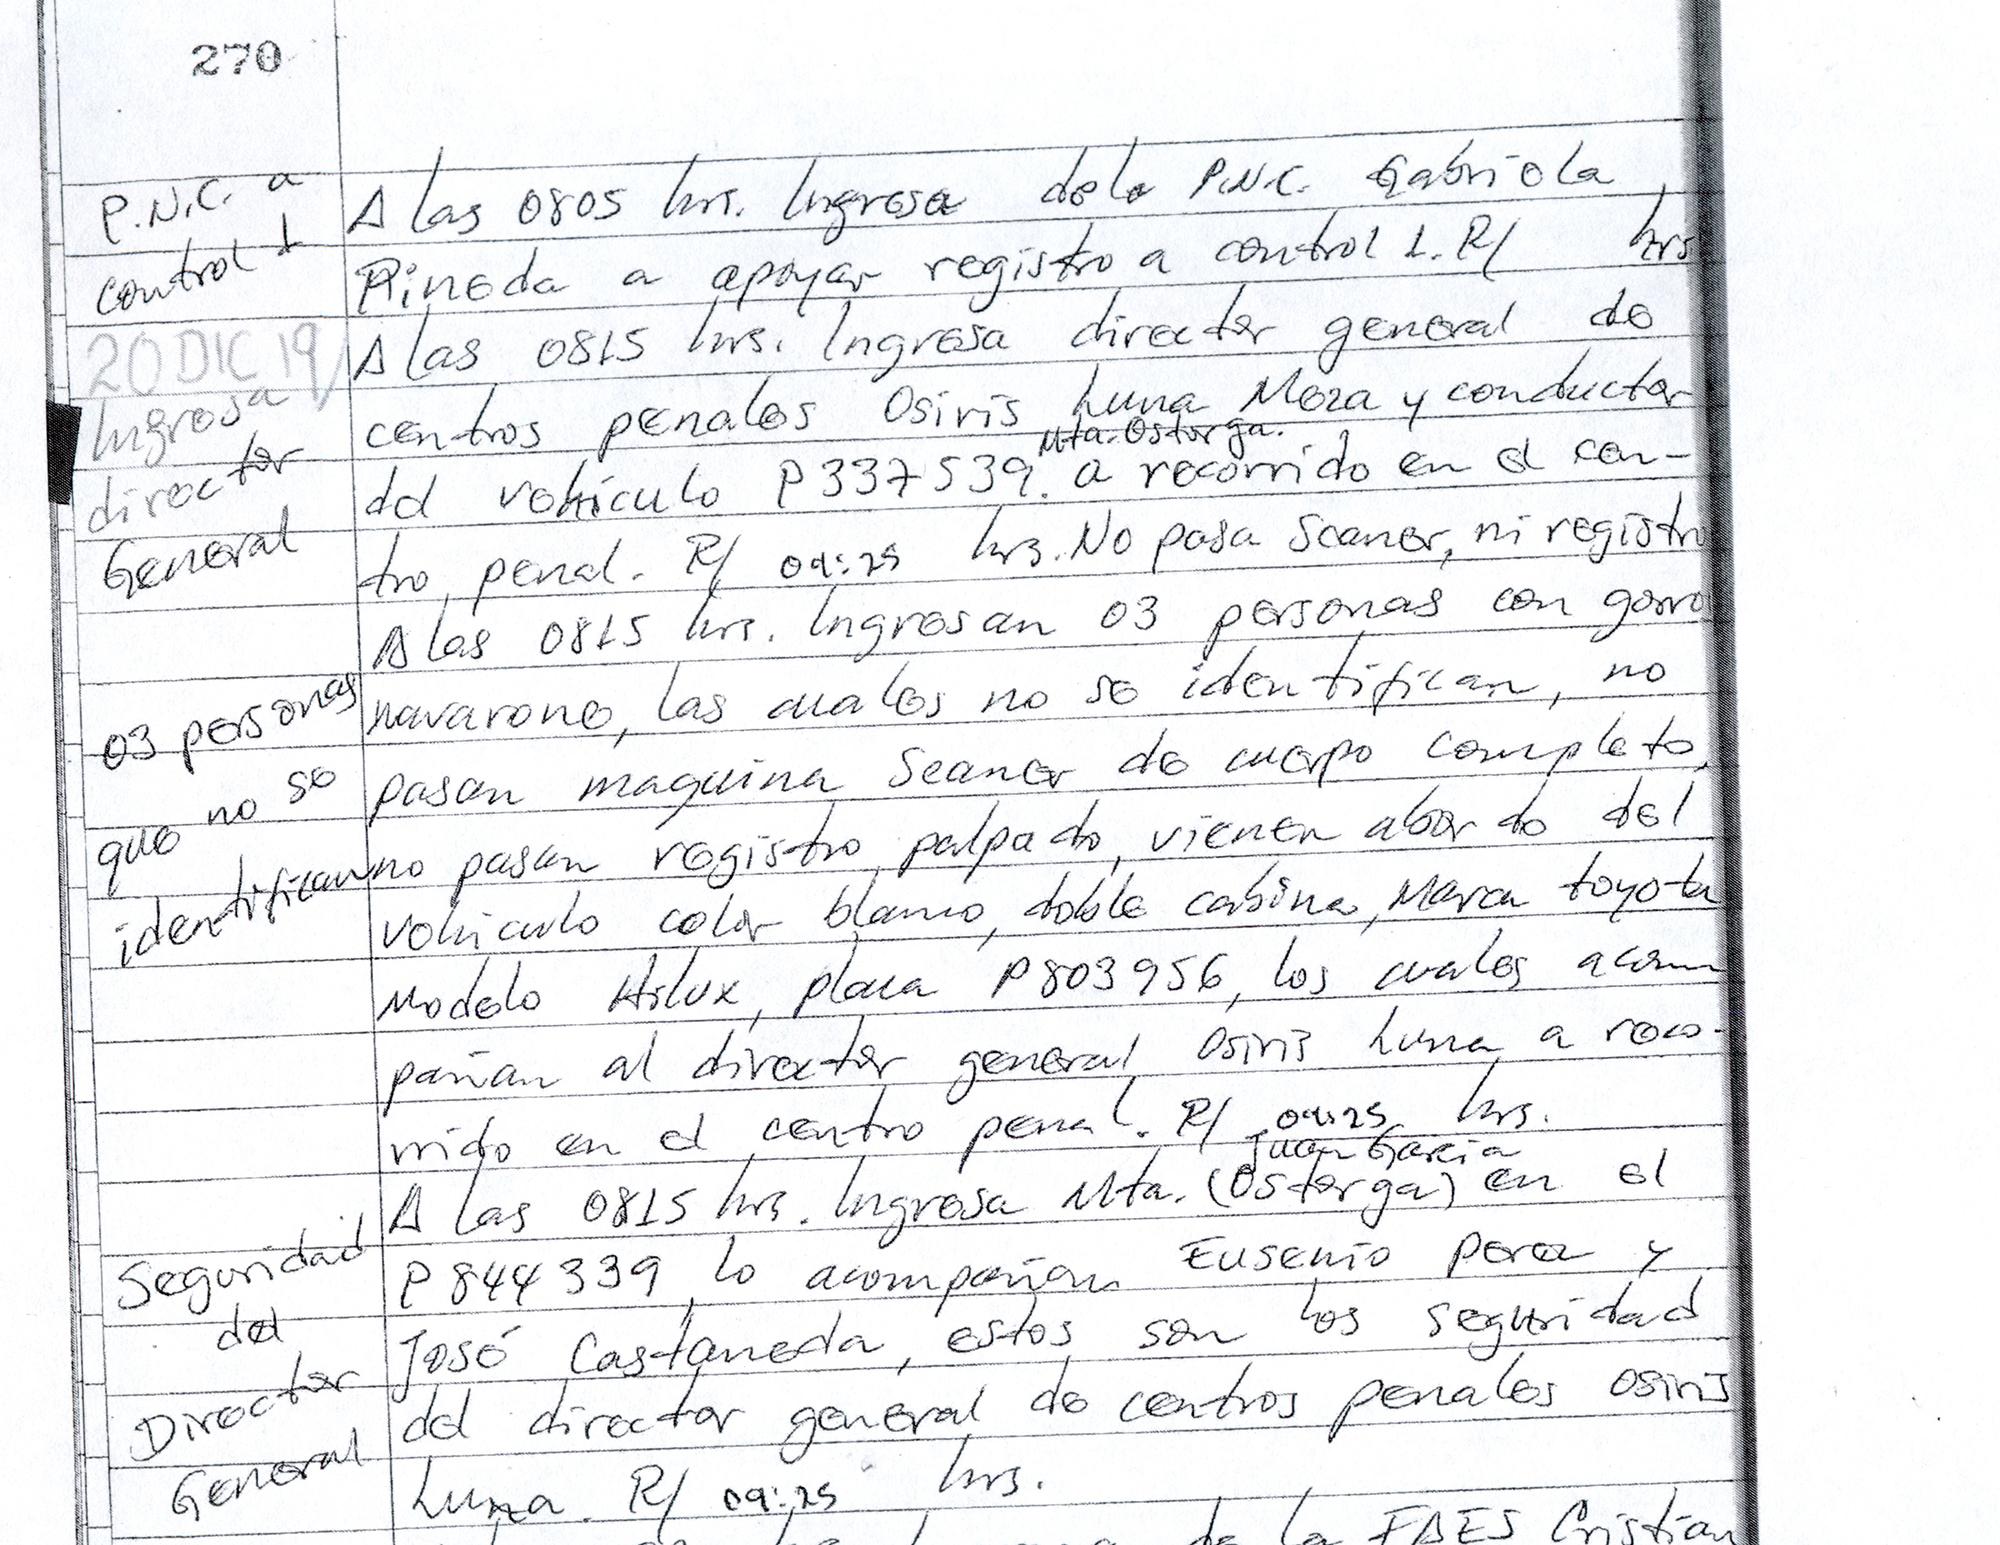 270
P.N.C. a
control 1
A las 0805 hrs. Ingresa dela P.N.C. Gabriela
Pineda a apoyar registro a control 1. R/ hrs
20 DIC 19
Ingresa
director
General
A las 0815 hrs. Ingresa director general de
centros penales Osiris Luna Meza y conductor
Mta. Ostorga.
del vehículo P337539. a recorrido en el cen-
tro penal. R/ 09:25 hrs. No pasa Scaner, ni registro
03 personas
que no se
identifican
A las 0815 hrs. Ingresan 03 personas con gorro
navarone, las cuales no se identifican, no
pasan maquina Scaner de cuerpo completo,
no pasan registro palpado, vienen abordo del
vehiculo color blanco, doble cabina, Marca toyota
Modelo Hilux, placa P803956, los cuales acom
pañan al director general Osiris Luna a reco-
rrido en el centro penal. R/ 09:25 hrs.
Seguridad
del
Director
General
Juan Garcia
A las 0815 hrs. Ingresa Mta. (Ostorga) en el
P844339, lo acompañan Eusenio Perez y
José Castaneda, estos son los seguridad
del director general de centros penales Osiris
Luna. R/ 09:25 hrs.
de la FAES Cristian